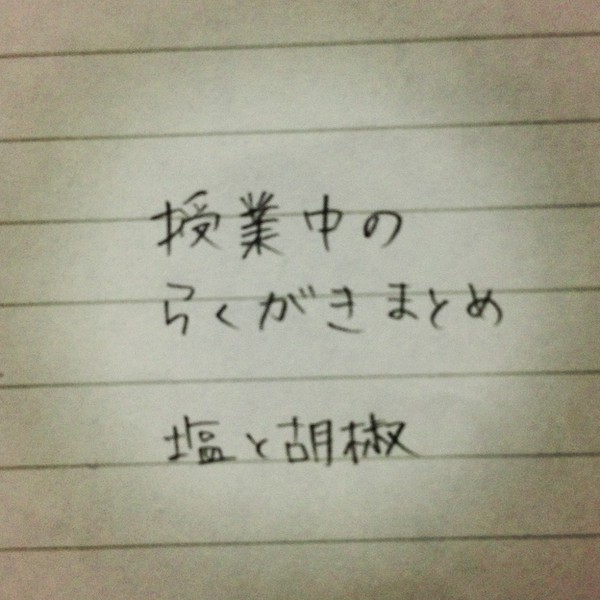 授業中の
らくがきまとめ
塩と胡椒